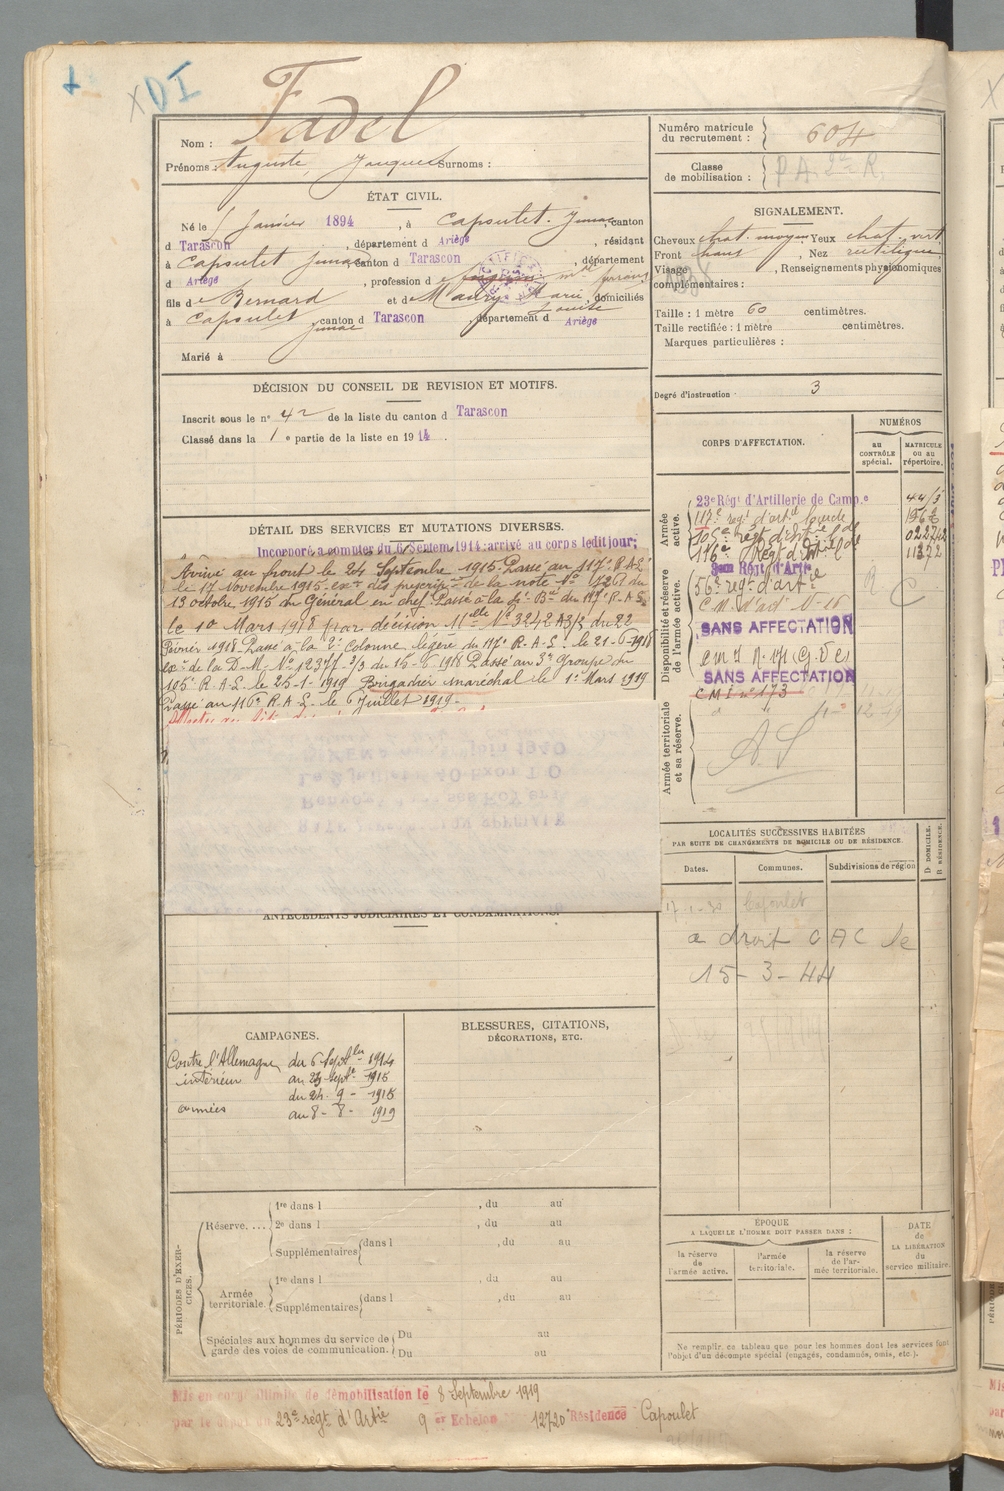 XDI
Fadel
Nom :
Prénoms : Auguste, Jacques Surnoms :
Numéro matricule
du recrutement : 604
Classe
de mobilisation : P A. 2e R.
ÉTAT CIVIL.
Né le 5 Janvier 1894, à Capoulet-Junac, canton
d Tarascon, département d Ariège, résidant
à Capoulet Junac, canton d Tarascon, département
d Ariège, profession de
fils de Bernard et de Maury Marie, domiciliés
Louise
à Capoulet Junac canton d Tarascon département d Ariège
Marié à
SIGNALEMENT.
Cheveux chat. moyen, Yeux chat. vert
Front haut, Nez rectiligne
Visage, Renseignements physionomiques
complémentaires :
Taille : 1 mètre 60 centimètres.
Taille rectifiée : 1 mètre centimètres.
Marques particulières :
Degré d'instruction : 3
DÉCISION DU CONSEIL DE REVISION ET MOTIFS.
Inscrit sous le n° 42 de la liste du canton d Tarascon
Classé dans la 1e partie de la liste en 1914.
CORPS D'AFFECTATION.
NUMÉROS
au
CONTRÔLE
spécial.
MATRICULE
ou au
répertoire.
Armée
active.
23e Régt d'Artillerie de Camp.e
117e régt d'artie lourde
105e régt d'artie lde
116e Régt d'artie lde 11372
Disponibilité et réserve
de l'armée active.
3em Régt d'Artie
56e régt d'artie
C.M. d'art N-16
SANS AFFECTATION
SANS AFFECTATION
CMI n° 173
Armée territoriale
et sa réserve.
DÉTAIL DES SERVICES ET MUTATIONS DIVERSES.
Incorporé à compter du 6 Septem. 1914; arrivé au corps ledit jour;
Arrivé au front le 24 Septembre 1915. Passé au 117e R.A.L.
le 17 Novembre 1915 - exon des prescriptons de la note No 1201 du
13 octobre 1915 du Général en chef. Passé à la 4e Bie du 117e R.A.L.
le 10 Mars 1918 par décision Mielle No 3242 A 3/3 du 22
Février 1918 Passé à la 2e Colonne légère du 117e R.A.L. le 21-6-1918
exon de la D.M. No 12377-3/3 du 15-6-1918 Passé au 3e Groupe du
105e R.A.L. le 25-1-1919 Brigadier maréchal le 1er Mars 1919
Passé au 116e R.A.L. le 6 Juillet 1919 -
LOCALITÉS SUCCESSIVES HABITÉES
PAR SUITE DE CHANGEMENTS DE DOMICILE OU DE RÉSIDENCE.
Dates.
Communes.
Subdivisions de région
D. DOMICILE.
R. RÉSIDENCE.
Capoulet
a droit CAC le
15-3-44
ANTÉCÉDENTS JUDICIAIRES ET CONDAMNATIONS.
CAMPAGNES.
Contre l'Allemagne du 6 Septbre 1914
intérieur au 23 Septe 1915
du 24 - 9 - 1915
armées au 8 - 8 - 1919
BLESSURES, CITATIONS,
DÉCORATIONS, ETC.
PÉRIODES D'EXERCICES.
Réserve....
1re dans l, du au
2e dans l, du au
Supplémentaires dans l, du au
Armée
territoriale.
1re dans l, du au
Supplémentaires dans l, du au
Spéciales aux hommes du service de
garde des voies de communication.
Du au
Du au
ÉPOQUE
A LAQUELLE L'HOMME DOIT PASSER DANS :
la réserve
de
l'armée active.
l'armée
territoriale.
la réserve
de l'ar-
mée territoriale.
DATE
de
LA LIBÉRATION
du
service militaire.
Ne remplir ce tableau que pour les hommes dont les services font
l'objet d'un décompte spécial (engagés, condamnés, omis, etc.).
Mis en congé illimité de démobilisation le 8 Septembre 1919
par le dépôt du 23e régt d'Artie 9 er Echelon 12720 Résidence Capoulet